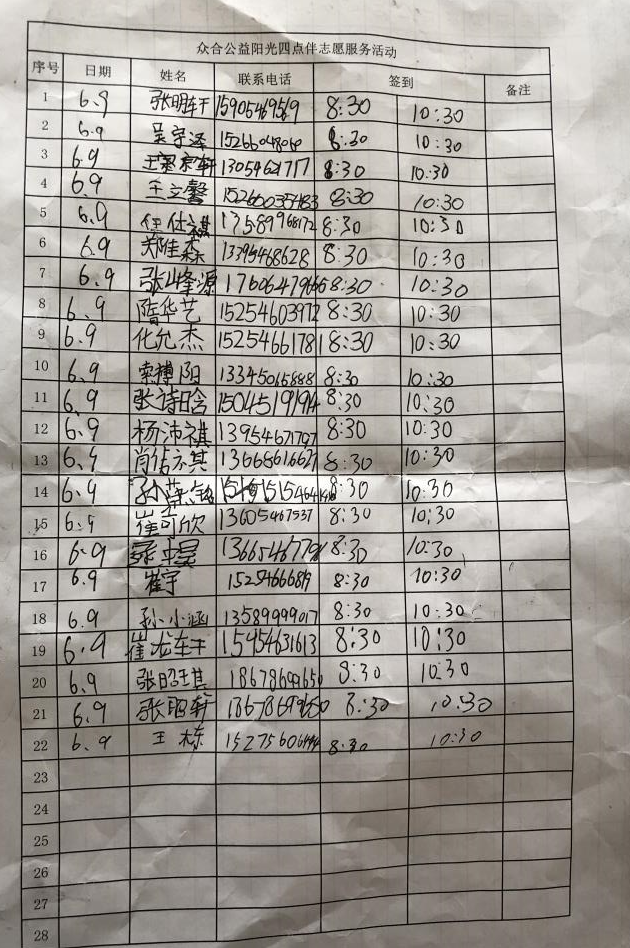 众合公益阳光四点伴志愿服务活动
序号 日期 姓名 联系电话 签到 备注
1 6.9 张明轩 15905469569 8:30 10:30
2 6.9 吴宇泽 8:30 10:30
3 6.9 13054621717 8:30 10:30
4 6.9 王立馨 8:30 10:30
5 6.9 任仕祺 13589968172 8:30 10:30
6 6.9 郑佳森 13395468628 8:30 10:30
7 6.9 张峰源 8:30 10:30
8 6.9 隋华艺 15254603972 8:30 10:30
9 6.9 化允杰 15254661781 8:30 10:30
10 6.9 索搏阳 13345065888 8:30 10:30
11 6.9 张诗晗 15045191194 8:30 10:30
12 6.9 杨沛祺 13954671797 8:30 10:30
13 6.9 13668616627 8:30 10:30
14 6.9 8:30 10:30
15 6.9 崔奇欣 13605467537 8:30 10:30
16 6.9 8:30 10:30
17 6.9 崔宇 8:30 10:30
18 6.9 孙小涵 13589999017 8:30 10:30
19 6.9 崔龙轩 15454631613 8:30 10:30
20 6.9 张昭琪 18678699650 8:30 10:30
21 6.9 张昭轩 18678699650 8:30 10:30
22 6.9 王栋 8:30 10:30
23
24
25
26
27
28